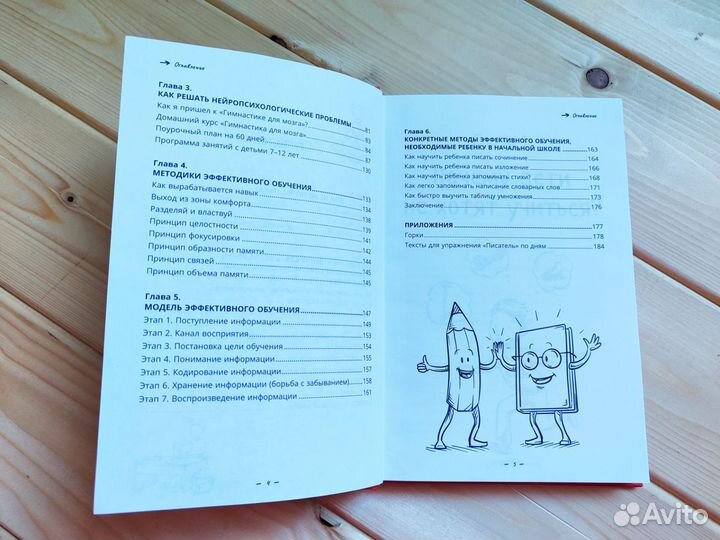 → Оглавление
Глава 3.
КАК РЕШАТЬ НЕЙРОПСИХОЛОГИЧЕСКИЕ ПРОБЛЕМЫ
Как я пришел к «Гимнастике для мозга»? 81
Домашний курс «Гимнастика для мозга» 83
Поурочный план на 60 дней 84
Программа занятий с детьми 7–12 лет 87
130
Глава 4.
МЕТОДИКИ ЭФФЕКТИВНОГО ОБУЧЕНИЯ 133
Как вырабатывается навык 134
Выход из зоны комфорта 138
Разделяй и властвуй 139
Принцип целостности 141
Принцип фокусировки 142
Принцип образности памяти 144
Принцип связей 145
Принцип объема памяти 145
Глава 5.
МОДЕЛЬ ЭФФЕКТИВНОГО ОБУЧЕНИЯ 147
Этап 1. Поступление информации 149
Этап 2. Канал восприятия 153
Этап 3. Постановка цели обучения 154
Этап 4. Понимание информации 155
Этап 5. Кодирование информации 157
Этап 6. Хранение информации (борьба с забыванием) 158
Этап 7. Воспроизведение информации 161
– 4 –
→ Оглавление
Глава 6.
КОНКРЕТНЫЕ МЕТОДЫ ЭФФЕКТИВНОГО ОБУЧЕНИЯ,
НЕОБХОДИМЫЕ РЕБЕНКУ В НАЧАЛЬНОЙ ШКОЛЕ 163
Как научить ребенка писать сочинение 164
Как научить ребенка писать изложение 166
Как научить ребенка запоминать стихи? 168
Как легко запоминать написание словарных слов 171
Как быстро выучить таблицу умножения 173
Заключение 176
ПРИЛОЖЕНИЯ 177
Горки 178
Тексты для упражнения «Писатель» по дням 184
– 5 –
Avito